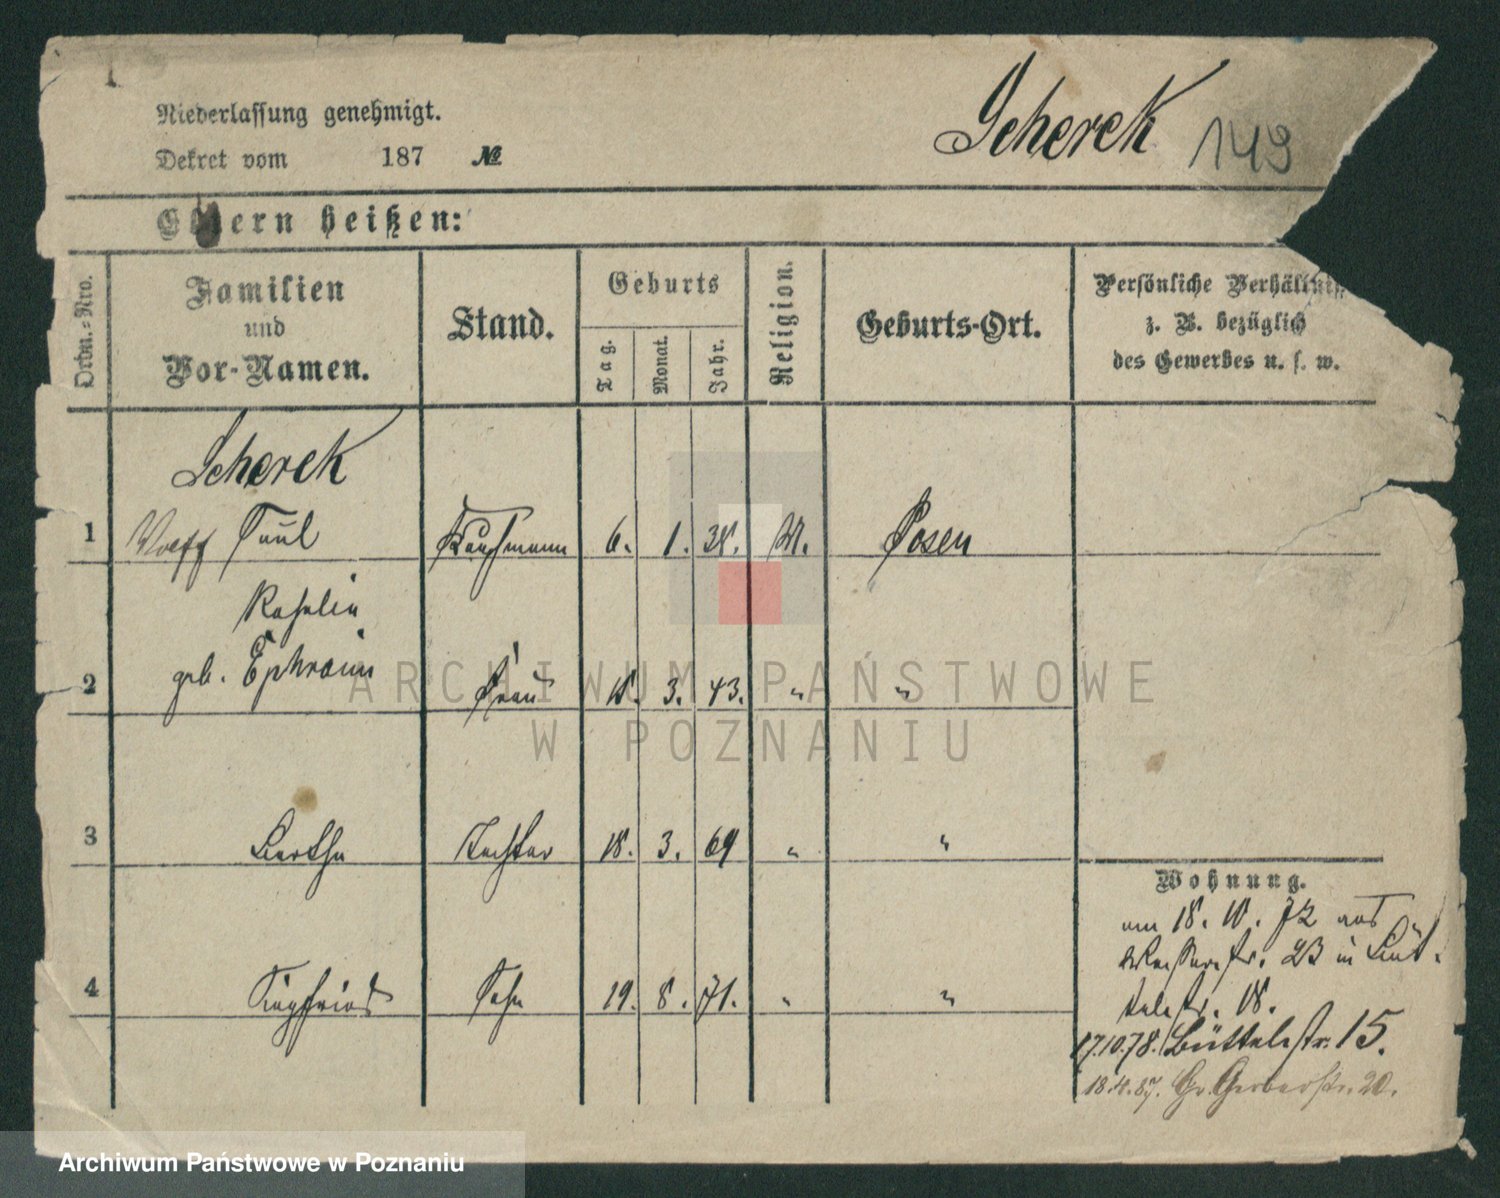 Niederlassung genehmigt.
Scherek 149
Dekret vom 187 №
Eltern heißen:
Ordn.-Nro.
Familien
und
Vor-Namen.
Stand.
Geburts
Tag.
Monat.
Jahr.
Religion.
Geburts-Ort.
Persönliche Verhältniss
z. B. bezüglich
des Gewerbes u. s. w.
Scherek
1 Wolff Saul Kaufmann 6. 1. 38. M. Posen
Rosalie
2 geb. Ephraim Frau 3. 43. " "
3 Bertha Tochter 18. 3. 69 " "
4 Siegfried Sohn 19. 8. 71. " "
Wohnung.
am 18. 10. 72 aus
Wasserstr. 23 in Büt-
telstr. 18.
17.10.78. Büttelstr. 15.
18.4.87. Gr. Gerberstr. 20.
ARCHIWUM PAŃSTWOWE
W POZNANIU
Archiwum Państwowe w Poznaniu